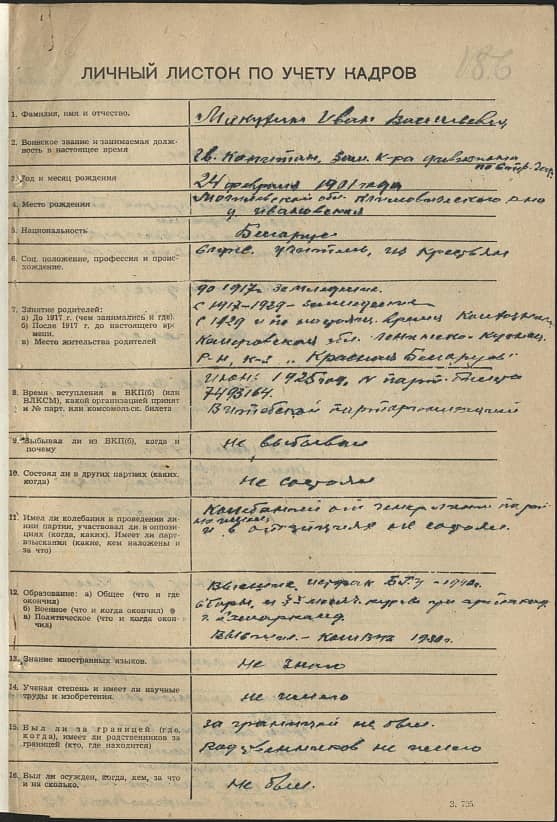 186
ЛИЧНЫЙ ЛИСТОК ПО УЧЕТУ КАДРОВ
1. Фамилия, имя и отчество.
Иван Васильевич
2. Воинское звание и занимаемая долж-
ность в настоящее время
Гв. Капитан, Зам. к-ра дивизиона
3. Год и месяц рождения
24 февраля 1901 года
4. Место рождения
Могилевской обл. Климовичского р-на
д. Ивановская
5. Национальность
Беларус
6. Соц. положение, профессия и проис-
хождение.
служ. учитель, из крестьян
7. Занятие родителей:
а) До 1917 г. (чем занимались и где).
б) После 1917 г. до настоящего вре
мени.
в) Место жительства родителей
до 1917г. земледелие.
с 1917-1929 - земледелие
с 1929 и по настоящ. время Колхозник,
обл. Ленинско-Кузнец.
р-н, к-з „Красная Беларусь"
8. Время вступления в ВКП(б) (или
ВЛКСМ), какой организацией принят
и № парт. или комсомольск. билета
Июнь 1925 год, № парт. билета
7493164.
Витебской парторганизацией
9. Выбывал ли из ВКП(б), когда и
почему
Не выбывал
10. Состоял ли в других партиях (каких,
когда)
Не состоял
11. Имел ли колебания в проведении ли-
нии партии, участвовал ли в оппози-
циях (когда, каких). Имеет ли парт-
взыскания (какие, кем наложены и
за что)
Колебаний от генеральной
и в оппозициях не состоял.
12. Образование: а) Общее (что и где
окончил)
б) Военное (что и когда окончил)
в) Политическое (что и когда окон-
чил)
Высшее, истфак БГУ - 1940г.
г. Самарканд
13. Знание иностранных языков.
Не знаю
14. Ученая степень и имеет ли научные
труды и изобретения.
Не имею
15. Был ли за границей (где,
когда), имеет ли родственников за
границей (кто, где находится)
За границей не был.
родственников не имею
16. Был ли осужден, когда, кем, за что
и на сколько.
Не был.
З. 735